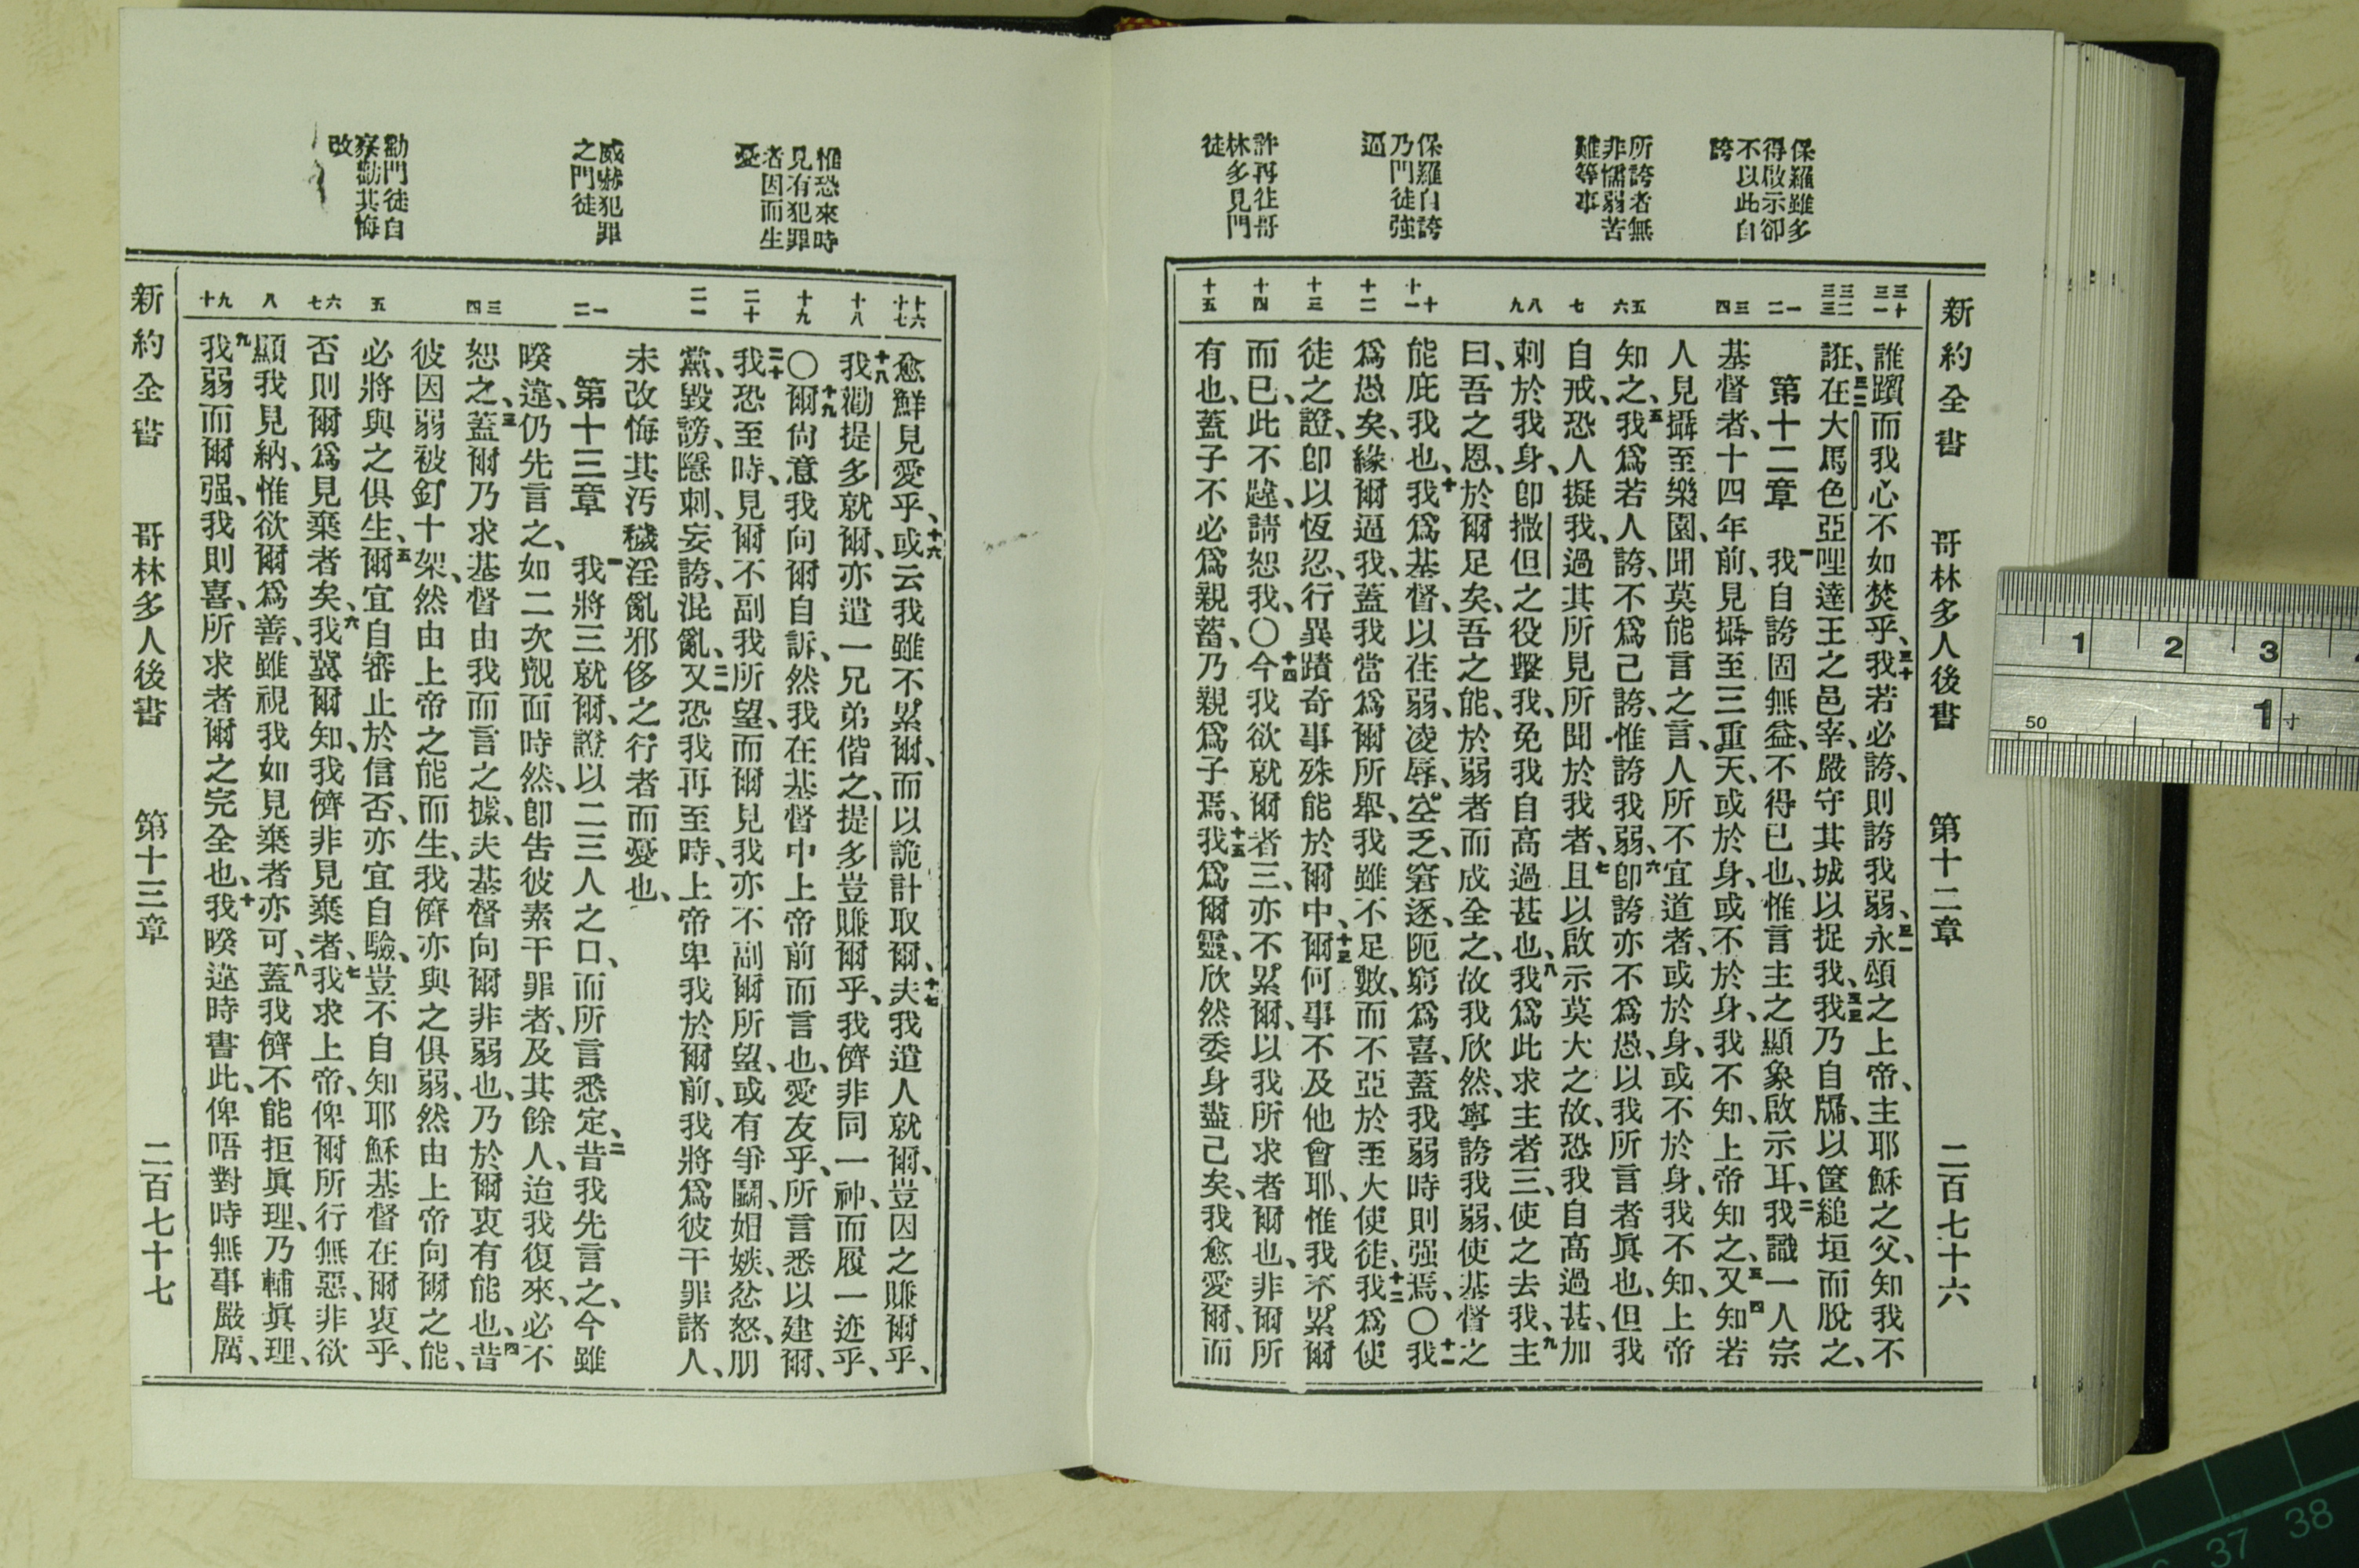 保羅雖多
得啟示卻
不以此自
誇
所誇者無
非懦弱苦
難等事
保羅自誇
乃門徒強
逼
許再往哥
林多見門
徒
新約全書　哥林多人後書　第十二章　二百七十六
三十 三一 三二 三三 一 二 三 四 五 六 七 八 九 十 十一 十二 十三 十四 十五
誰躓而我心不如焚乎、三十我若必誇、則誇我弱、三一永頌之上帝、主耶穌之父、知我不
誑、三二在大馬色亞哩達王之邑宰、嚴守其城以捉我、三三我乃自牖、以筐縋垣而脫之、
第十二章　一我自誇固無益、不得已也、惟言主之顯象啟示耳、二我識一人宗
基督者、十四年前、見攝至三重天、或於身、或不於身、我不知、上帝知之、三又知四若
人見攝至樂園、聞莫能言之言、人所不宜道者、或於身、或不於身、我不知、上帝
知之、五我爲若人誇、不爲己誇、惟誇我弱、六卽誇亦不爲愚、以我所言者眞也、但我
自戒、恐人擬我、過其所見所聞於我者、七且以啟示莫大之故、恐我自高過甚、加
刺於我身、卽撒但之役擊我、免我自高過甚也、八我爲此求主者三、使之去我、九主
曰、吾之恩、於爾足矣、吾之能、於弱者而成全之、故我欣然、寧誇我弱、使基督之
能庇我也、十我爲基督、以在弱、凌辱、空乏、窘逐、阨窮爲喜、蓋我弱時則强焉、〇十一我
爲愚矣、緣爾逼我、蓋我當爲爾所舉、我雖不足數、而不亞於至大使徒、十二我爲使
徒之證、卽以恆忍、行異蹟奇事殊能於爾中、十三爾何事不及他會耶、惟我不累爾
而已、此不韙、請恕我、〇十四今我欲就爾者三、亦不累爾、以我所求者爾也、非爾所
有也、蓋子不必爲親蓄、乃親爲子焉、十五我爲爾靈、欣然委身盡己矣、我愈愛爾、而
惟恐來時
見有犯罪
者因而生
憂
威嚇犯罪
之門徒
勸門徒自
察勸其悔
改
十六 十七 十八 十九 二十 二一 一 二 三 四 五 六 七 八 九 十
愈鮮見愛乎、十六或云我雖不累爾、而以詭計取爾、十七夫我遣人就爾、豈因之賺爾乎、
十八我勸提多就爾、亦遣一兄弟偕之、提多豈賺爾乎、我儕非同一神、而履一迹乎、
〇十九爾尙意我向爾自訴、然我在基督中上帝前而言也、愛友乎、所言悉以建爾、
二十我恐至時、見爾不副我所望、而爾見我亦不副爾所望、或有爭鬭、媢嫉、忿怒、朋
黨、毀謗、隱刺、妄誇、混亂、二一又恐我再至時、上帝卑我於爾前、我將爲彼干罪諸人、
未改悔其汚穢淫亂邪侈之行者而憂也、
第十三章　一我將三就爾、證以二三人之口、而所言悉定、二昔我先言之、今雖
暌違、仍先言之、如二次覿面時然、卽告彼素干罪者、及其餘人、迨我復來、必不
恕之、三蓋爾乃求基督由我而言之據、夫基督向爾非弱也、乃於爾衷有能也、四昔
彼因弱被釘十架、然由上帝之能而生、我儕亦與之俱弱、然由上帝向爾之能、
必將與之俱生、五爾宜自審止於信否、亦宜自驗、豈不自知耶穌基督在爾衷乎、
否則爾爲見棄者矣、六我冀爾知、我儕非見棄者、七我求上帝、俾爾所行無惡、非欲
顯我見納、惟欲爾爲善、雖視我如見棄者亦可、八蓋我儕不能拒眞理、乃輔眞理、
九我弱而爾强、我則喜、所求者爾之完全也、十我暌違時書此、俾晤對時無事嚴厲、
新約全書　哥林多人後書　第十三章　二百七十七
1 2 3
50 1寸
37 38